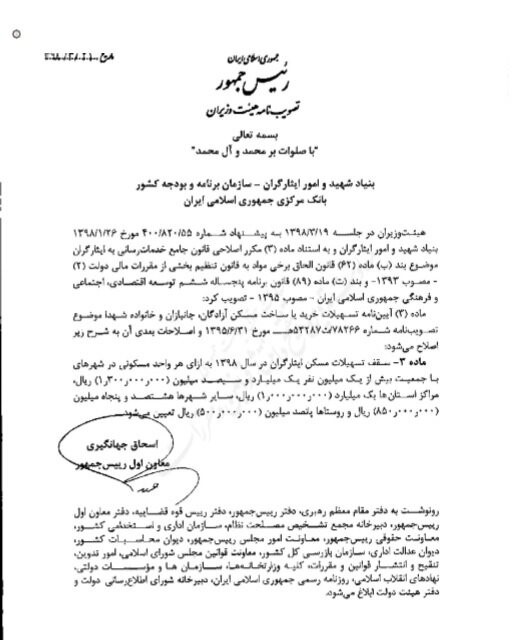 جمهوری اسلامی ایران
رئیس جمهور
تصویب نامه هیئت وزیران
بسمه تعالی
"با صلوات بر محمد و آل محمد"
بنیاد شهید و امور ایثارگران - سازمان برنامه و بودجه کشور
بانک مرکزی جمهوری اسلامی ایران
هیئت‌وزیران در جلسه ۱۳۹۸/۳/۱۹ به پیشنهاد شماره ۴۰۰/۸۲۰/۵۵ مورخ ۱۳۹۸/۱/۲۶
بنیاد شهید و امور ایثارگران و به استناد ماده (۳) مکرر اصلاحی قانون جامع خدمات‌رسانی به ایثارگران
موضوع بند (ب) ماده (۶۲) قانون الحاق برخی مواد به قانون تنظیم بخشی از مقررات مالی دولت (۲)
- مصوب ۱۳۹۳- و بند (ت) ماده (۸۹) قانون برنامه پنجساله ششم توسعه اقتصادی، اجتماعی
و فرهنگی جمهوری اسلامی ایران - مصوب ۱۳۹۵ - تصویب کرد:
ماده (۳) آیین‌نامه تسهیلات خرید یا ساخت مسکن آزادگان، جانبازان و خانواده شهدا موضوع
تصویب‌نامه شماره ۷۸۲۶۶/ت۵۳۲۸۷هـ مورخ ۱۳۹۵/۶/۳۱ و اصلاحات بعدی آن به شرح زیر
اصلاح می‌شود:
ماده ۳- سقف تسهیلات مسکن ایثارگران در سال ۱۳۹۸ به ازای هر واحد مسکونی در شهرهای
با جمعیت بیش از یک میلیون نفر یک میلیارد و سیصد میلیون (۱٫۳۰۰٫۰۰۰٫۰۰۰) ریال،
مراکز استان‌ها یک میلیارد (۱٫۰۰۰٫۰۰۰٫۰۰۰) ریال، سایر شهرها هشتصد و پنجاه میلیون
(۸۵۰٫۰۰۰٫۰۰۰) ریال و روستاها پانصد میلیون (۵۰۰٫۰۰۰٫۰۰۰) ریال تعیین می‌شود.
اسحاق جهانگیری
معاون اول رییس‌جمهور
رونوشت به دفتر مقام معظم رهبری، دفتر رییس‌جمهور، دفتر رییس قوه قضاییه، دفتر معاون اول
رییس‌جمهور، دبیرخانه مجمع تشخیص مصلحت نظام، سازمان اداری و استخدامی کشور،
معاونت حقوقی رییس‌جمهور، معاونت امور مجلس رییس‌جمهور، دیوان محاسبات کشور،
دیوان عدالت اداری، سازمان بازرسی کل کشور، معاونت قوانین مجلس شورای اسلامی، امور تدوین،
تنقیح و انتشار قوانین و مقررات، کلیه وزارتخانه‌ها، سازمان ها و مؤسسات دولتی،
نهادهای انقلاب اسلامی، روزنامه رسمی جمهوری اسلامی ایران، دبیرخانه شورای اطلاع‌رسانی دولت و
دفتر هیئت دولت ابلاغ می‌شود.